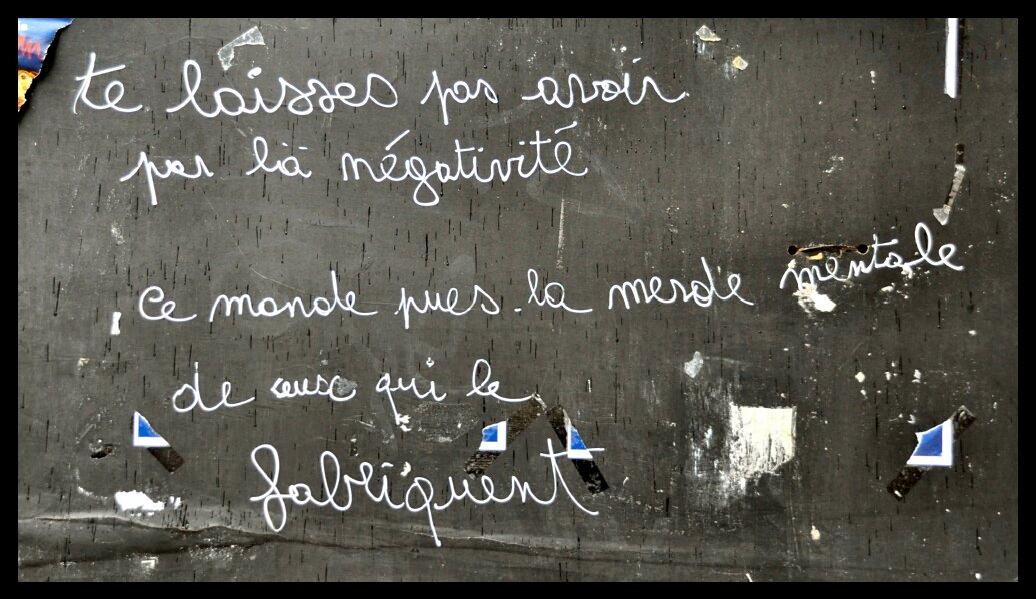 te laisses pas avoir
par là négativité
ce monde pues la merde mentale
de ceux qui le
fabriquent